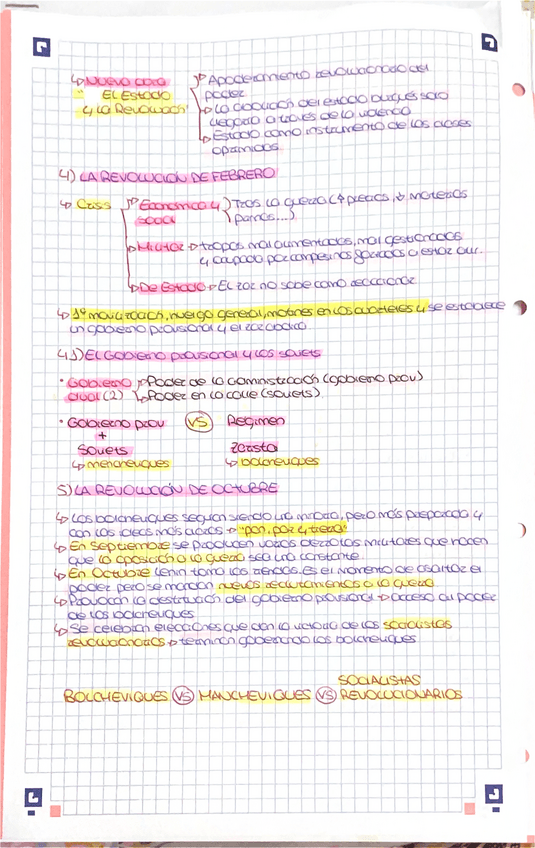 ↳ Nueva obra
"El Estado
y la Revolución"
↱ Apoderamiento revolucionario del
poder
↳ La abolición del estado burgués solo
llegaría a través de la violencia
↳ Estado como instrumento de las clases
oprimidas.
4) LA REVOLUCIÓN DE FEBRERO
↳ Crisis
Económica y
social
Tras la guerra (↑ precios, ↓ materias
primas...)
Militar → tropas mal alimentadas, mal gestionadas
y copado por campesinos forzados a estar allí.
De Estado → El zar no sabe como reaccionar
↳ 1º movilización, huelga general, motines en los cuarteles y se establece
un gobierno provisional y el zar abdica.
4.1) El Gobierno provisional y los soviets
• Gobierno ↱ Poder de la administración (gobierno prov)
dual (2) ↳ Poder en la calle (soviets)
• Gobierno prov VS Regimen
+
soviets zarista
↳ mencheviques ↳ bolcheviques
5) LA REVOLUCIÓN DE OCTUBRE
↳ Los bolcheviques seguían siendo una minoría, pero más preparada y
con las ideas más claras → "pan, paz y tierra"
↳ En Septiembre se producen varias derrotas militares que hacen
que la oposición a la guerra sea una constante
↳ En Octubre Lenin toma las riendas. Es el momento de asaltar el
poder pero se mandan nuevos reclutamientos a la guerra
↳ Provocan la destitución del gobierno provisional → acceso al poder
de los bolcheviques
↳ Se celebran elecciones que dan la victoria de los socialistas
revolucionarios → terminan gobernando los bolcheviques
SOCIALISTAS
BOLCHEVIQUES VS MANCHEVIQUES VS REVOLUCIONARIOS